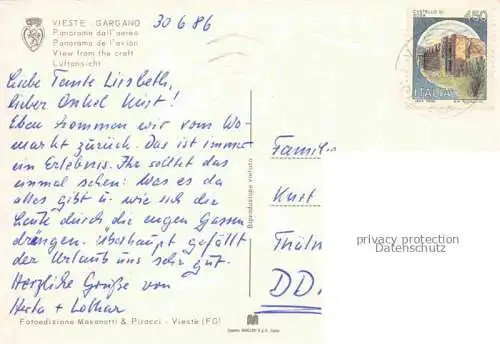 VIESTE - GARGANO
Panorama dall'aereo
Panorama de l'avion
View from the craft
Luftansicht
30/6/86
CASTELLO DI
450
ITALIA
Liebe Tante Lissbeth,
lieber Onkel Kurt!
Eben kommen wir vom Wo-
markt zurück. Das ist immer
ein Erlebnis. Ihr solltet das
einmal sehen: Was es da
alles gibt u. wie sich die
Leute durch die engen Gassen
drängen. Überhaupt gefällt
der Urlaub uns sehr gut.
Herzliche Grüße von
Herta + Lothar
Riproduzione vietata
Familie
Kurt
DD
privacy protection
Datenschutz
Fotoedizione Masanotti & Piracci - Vieste (FG)